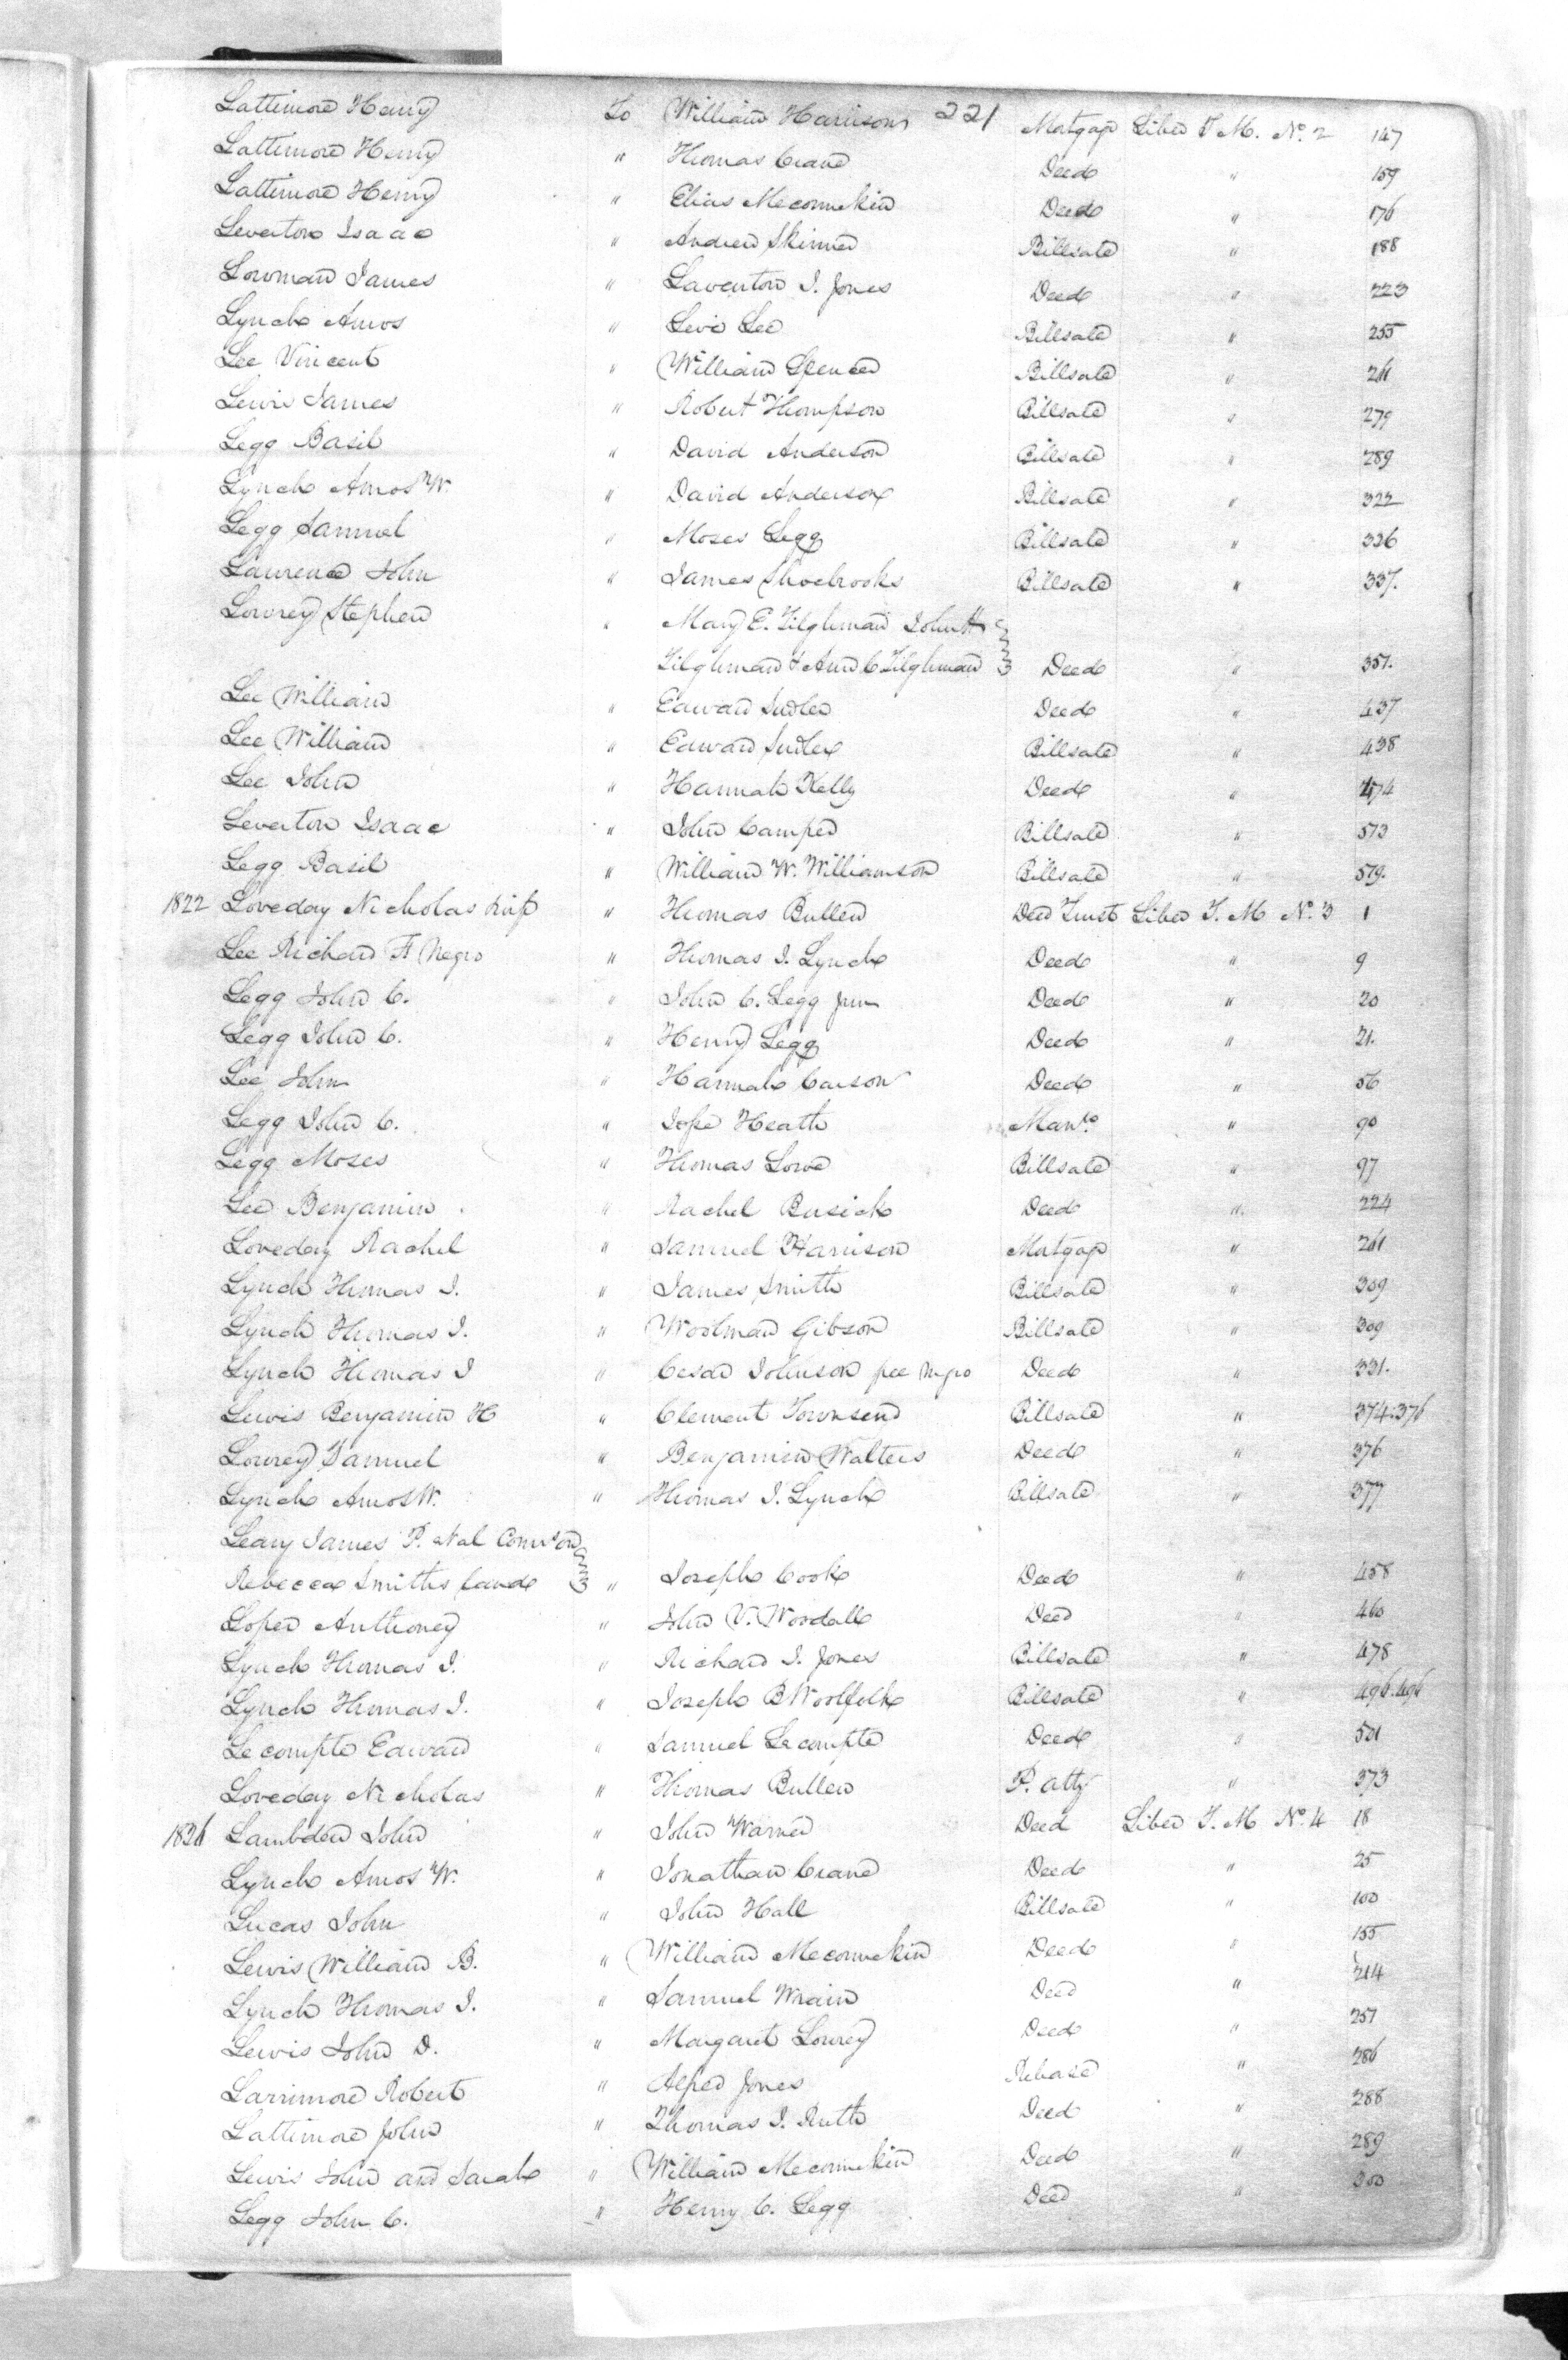 221
Lattimore Henry To William Harrison Mortgage Liber T M. No. 2 147
Lattimore Henry " Thomas Crane Deed " 159
Lattimore Henry " Elias Meconnekin Deed " 176
Leverton Isaac " Andrew Skinner Billsale " 188
Lowman James " Laventon I. Jones Deed " 223
Lynch Amos " Levi Lee Billsale " 255
Lee Vincent " William Spencer Billsale " 261
Lewis James " Robert Thompson Billsale " 279
Legg Basil " David Anderson Billsale " 289
Lynch Amos W. " David Anderson Billsale " 322
Legg Samuel " Moses Legg Billsale " 326
Laurence John " James Shoebrooks Billsale " 337.
Lowrey Stephen " Mary E. Tilghman John H
Tilghman & Ann C Tilghman Deed " 357.
Lee William " Edward Sudler Deed " 437
Lee William " Edward Sudler Billsale " 438
Lee John " Hannah Kelly Deed " 474
Leverton Isaac " John Camper Billsale " 573
Legg Basil " William W. Williamson Billsale " 579.
1822 Loveday Nicholas " Thomas Bullen Deed Trust Liber T. M No. 3 1
Lee Richard F Negro " Thomas I. Lynch Deed " 9
Legg John C. " John C. Legg Jun Deed " 20
Legg John C. " Henry Legg Deed " 21.
Lee John " Hannah Carson Deed " 56
Legg John C. " Jesse Heath Man.o " 90
Legg Moses " Thomas Lowe Billsale " 97
Lee Benjamin " Rachel Busick Deed " 224
Loveday Rachel " Samuel Harrison Mortgage " 261
Lynch Thomas I. " James Smith Billsale " 309
Lynch Thomas I. " Woolman Gibson Billsale " 309
Lynch Thomas I " Cesar Johnson free Negro Deed " 331.
Lewis Benjamin H " Clement Townsend Billsale " 374.376
Lowrey Samuel " Benjamin Walters Deed " 376
Lynch Amos W. " Thomas I. Lynch Billsale " 377
Leary James P. et al Comrs on
Rebecca Smiths Land " Joseph Cook Deed " 458
Loper Anthoney " John V. Woodall Deed " 460
Lynch Thomas I. " Richard I. Jones Billsale " 478
Lynch Thomas I. " Joseph B Woolfolk Billsale " 496.496
Lecompte Edward " Samuel Lecompte Deed " 501
Loveday Nicholas " Thomas Bullen P. atty " 373
1826 Lambden John " John Warner Deed Liber T. M No. 4 18
Lynch Amos W. " Jonathan Crane Deed " 25
Lucas John " John Hall Billsale " 100
Lewis William B. " William Meconnekin Deed " 155
Lynch Thomas I. " Samuel Wrain Deed " 214
Lewis John D. " Margaret Lowrey Deed " 257
Larrimore Robert " Alfred Jones Release " 286
Lattimore John " Thomas I. Ruth Deed " 288
Lewis John and Sarah " William Meconnekin Deed " 289
Legg John C. " Henry C. Legg Deed " 300